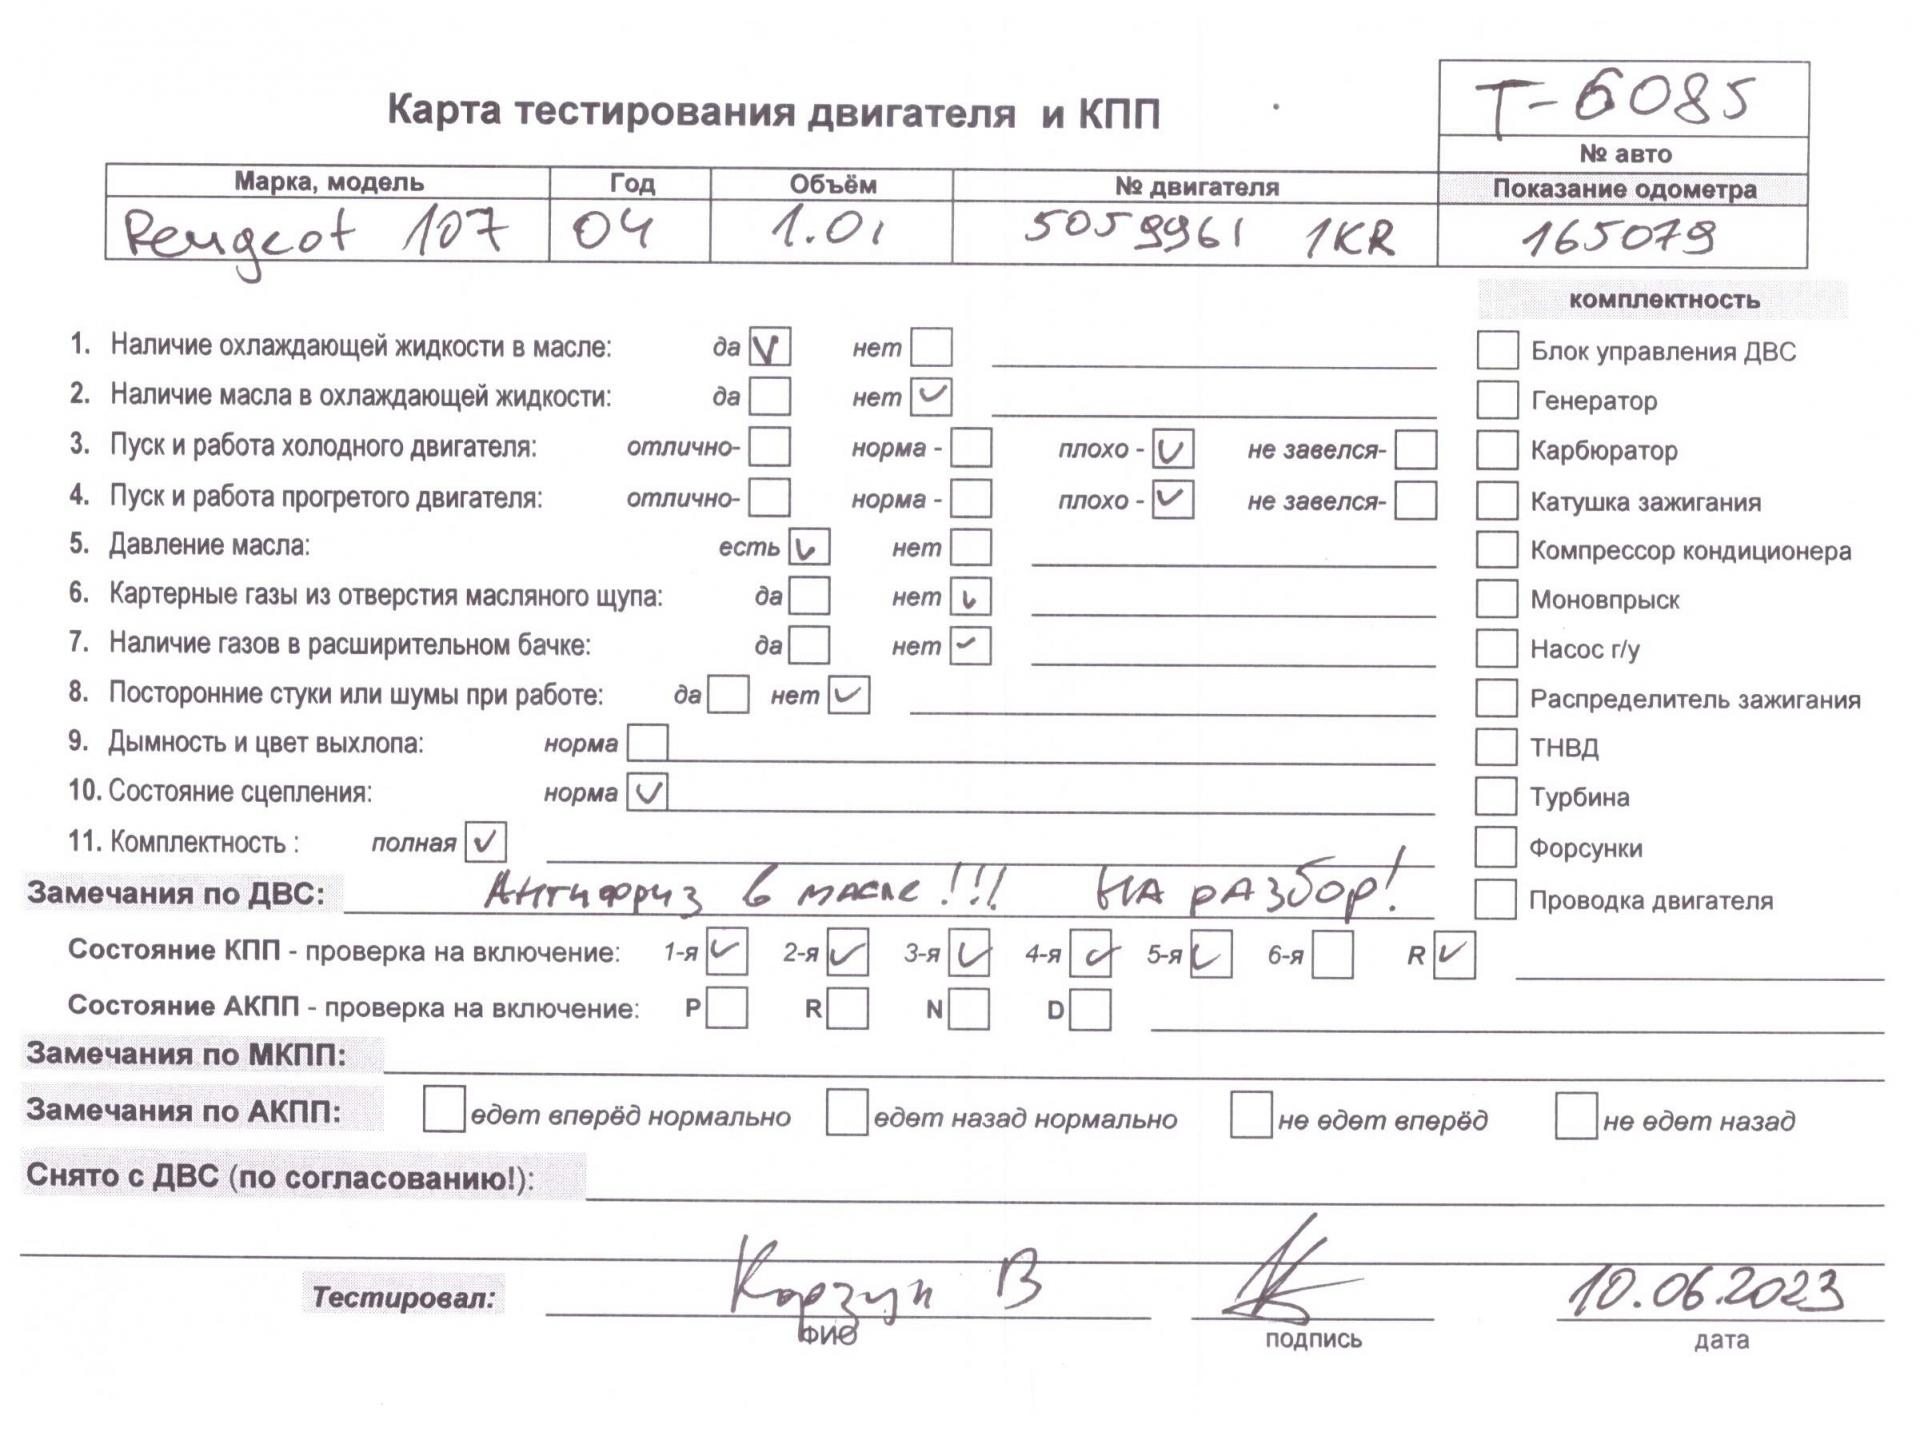 Т-6085
Карта тестирования двигателя и КПП
№ авто
Марка, модель Год Объём № двигателя Показание одометра
Peugeot 107 04 1.0i 5059961 1KR 165079
комплектность
1. Наличие охлаждающей жидкости в масле: да нет Блок управления ДВС
2. Наличие масла в охлаждающей жидкости: да нет Генератор
3. Пуск и работа холодного двигателя: отлично- норма - плохо - не завелся- Карбюратор
4. Пуск и работа прогретого двигателя: отлично- норма - плохо - не завелся- Катушка зажигания
5. Давление масла: есть нет Компрессор кондиционера
6. Картерные газы из отверстия масляного щупа: да нет Моновпрыск
7. Наличие газов в расширительном бачке: да нет Насос г/у
8. Посторонние стуки или шумы при работе: да нет Распределитель зажигания
9. Дымность и цвет выхлопа: норма ТНВД
10. Состояние сцепления: норма Турбина
11. Комплектность : полная Форсунки
Замечания по ДВС: Антифриз в масле!!! На разбор! Проводка двигателя
Состояние КПП - проверка на включение: 1-я 2-я 3-я 4-я 5-я 6-я R
Состояние АКПП - проверка на включение: P R N D
Замечания по МКПП:
Замечания по АКПП: едет вперёд нормально едет назад нормально не едет вперёд не едет назад
Снято с ДВС (по согласованию!):
Тестировал: Корзун В 10.06.2023
ФИО подпись дата